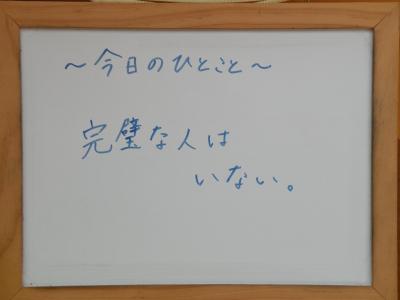 ～今日のひとこと～
完璧な人は
いない。